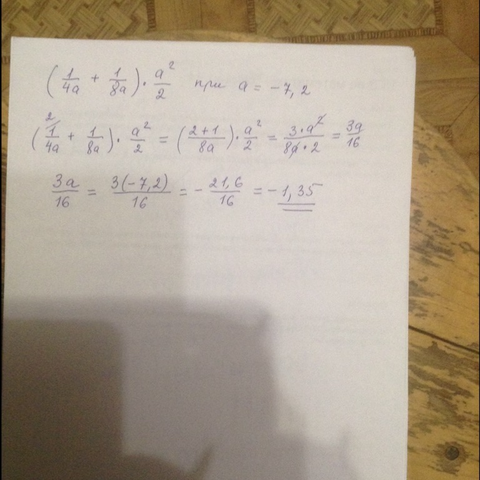 (1/4a + 1/8a) · a²/2 при a = -7,2
(²1/4a + 1/8a) · a²/2 = (2+1/8a) · a²/2 = 3·a²/8a·2 = 3a/16
3a/16 = 3(-7,2)/16 = - 21,6/16 = -1,35